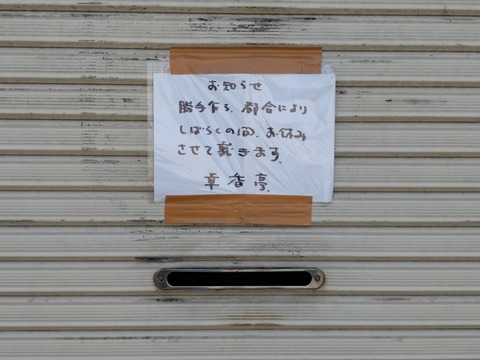 お知らせ
勝手乍ら、都合により
しばらくの間、お休み
させて戴きます。
章香亭